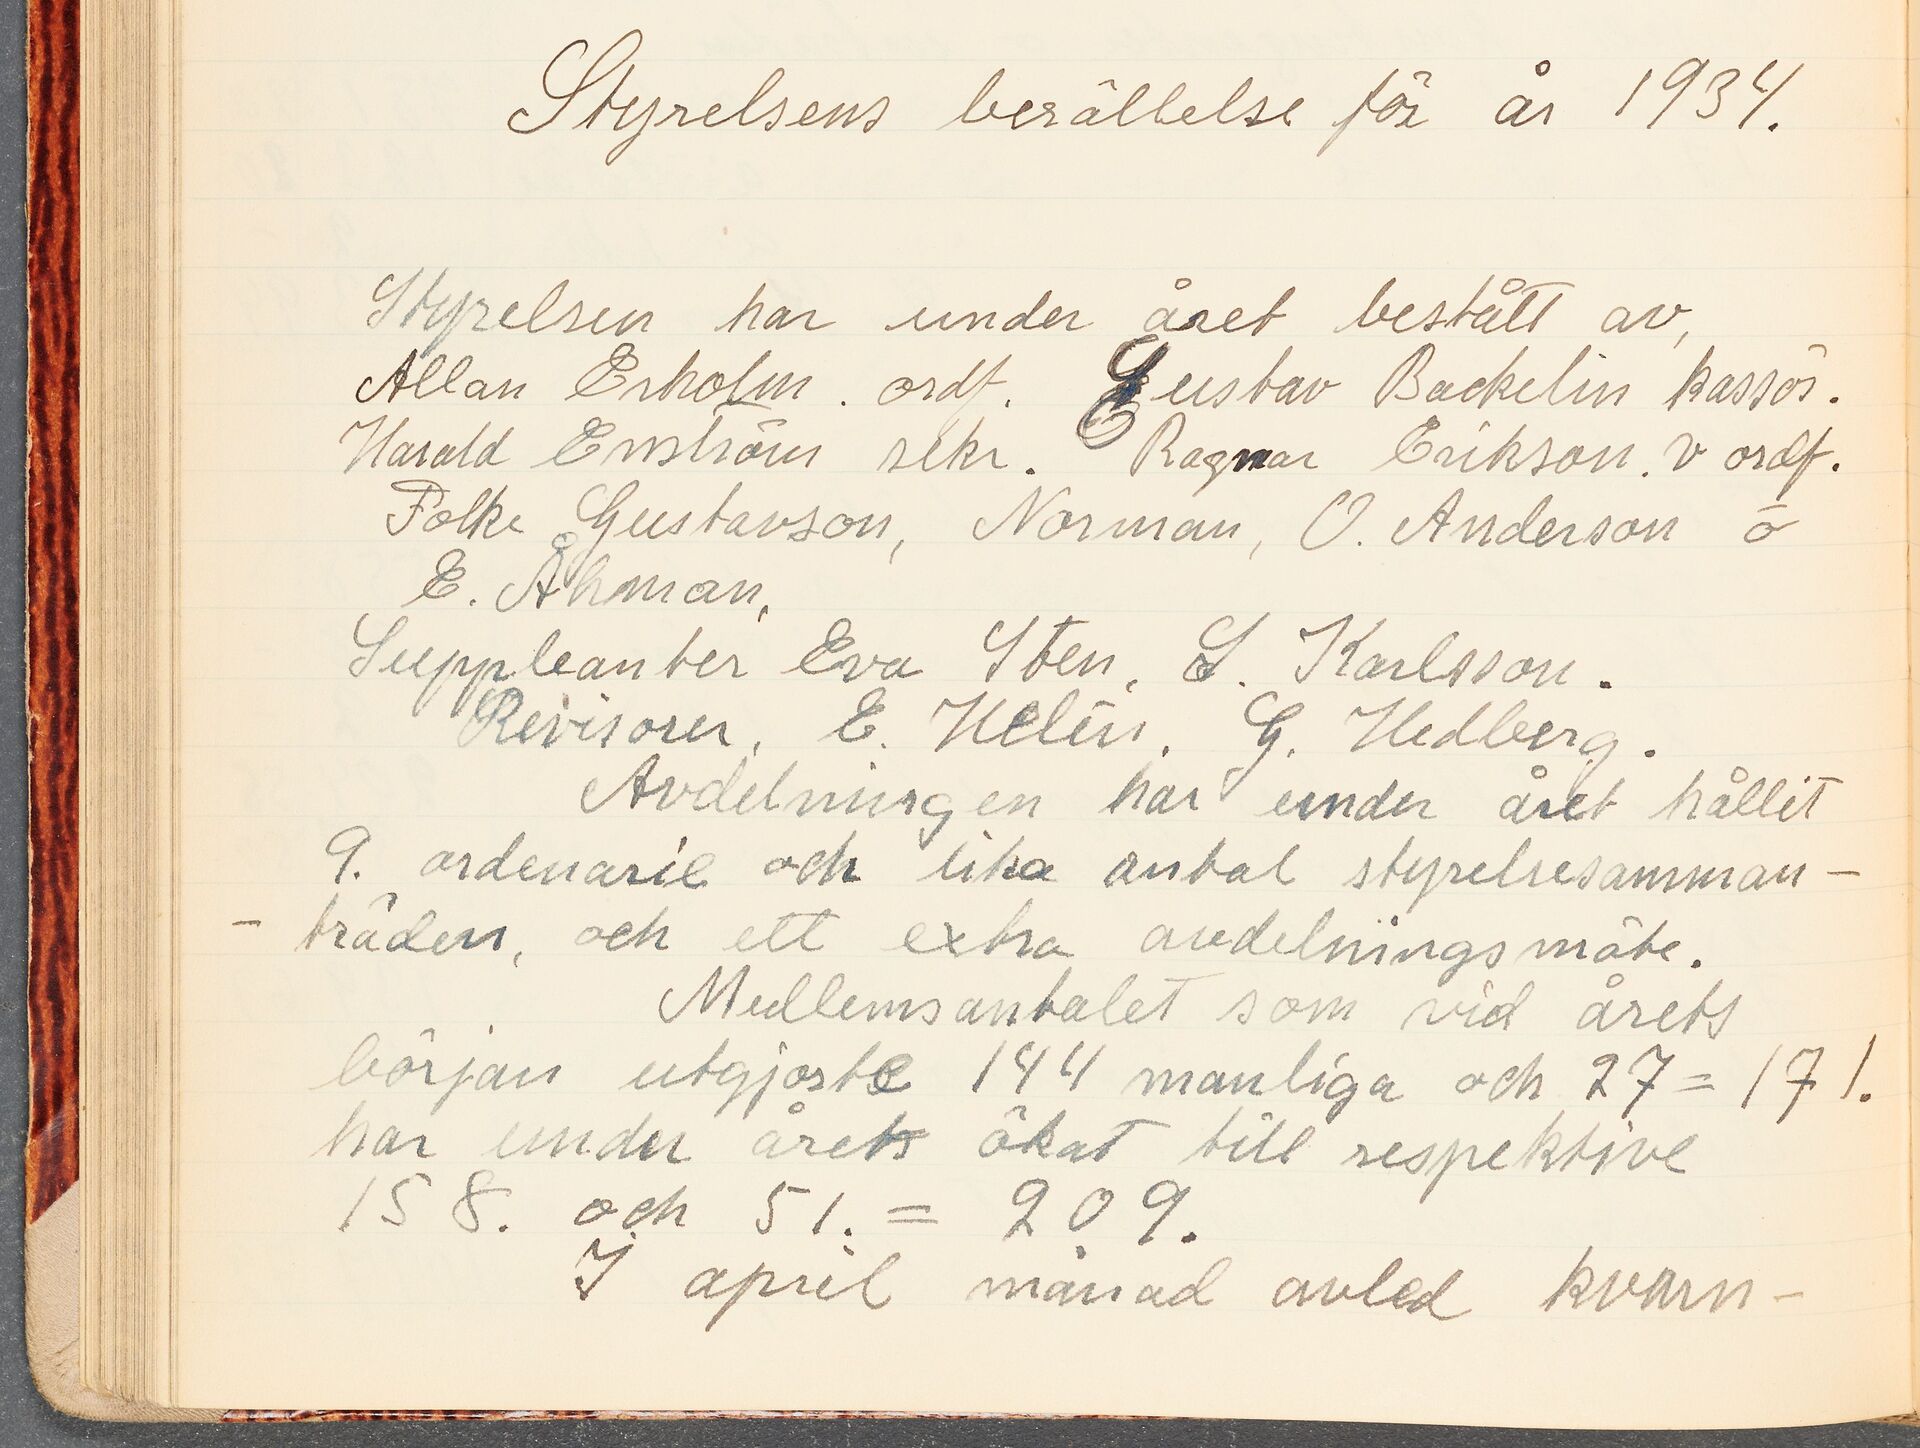 Styrelsens berättelse för år 1934.
Styrelsen har under året bestått av,
Allan Erholm. ordf. Gustav Backelin kassös.
Harald Enström sekr. Ragnar Erikson. v ordf.
Folke Gustavson, Norman, O. Anderson o
E. Åhman,
Suppleanter Eva Sten, S. Karlsson.
Revisorer, E. Helin. G. Hedberg.
Avdelningen har under året hållit
9. ordenarie och lika antal styrelsesamman-
-träden, och ett extra avdelningsmöte.
Medlemsantalet som vid årets
början utgjorte 144 manliga och 27 = 171.
har under året ökat till respektive
158. och 51. = 209.
I april månad avled kvarn-